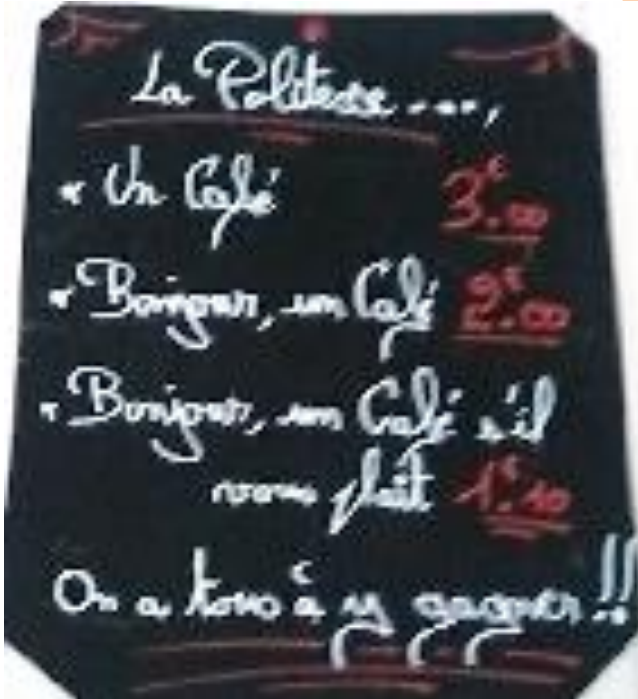 La Politesse....,
* Un Café 3€.00
* Bonjour, un Café 2€.00
* Bonjour, un Café s'il
vous plaît 1€.10
On a tous à y gagner!!